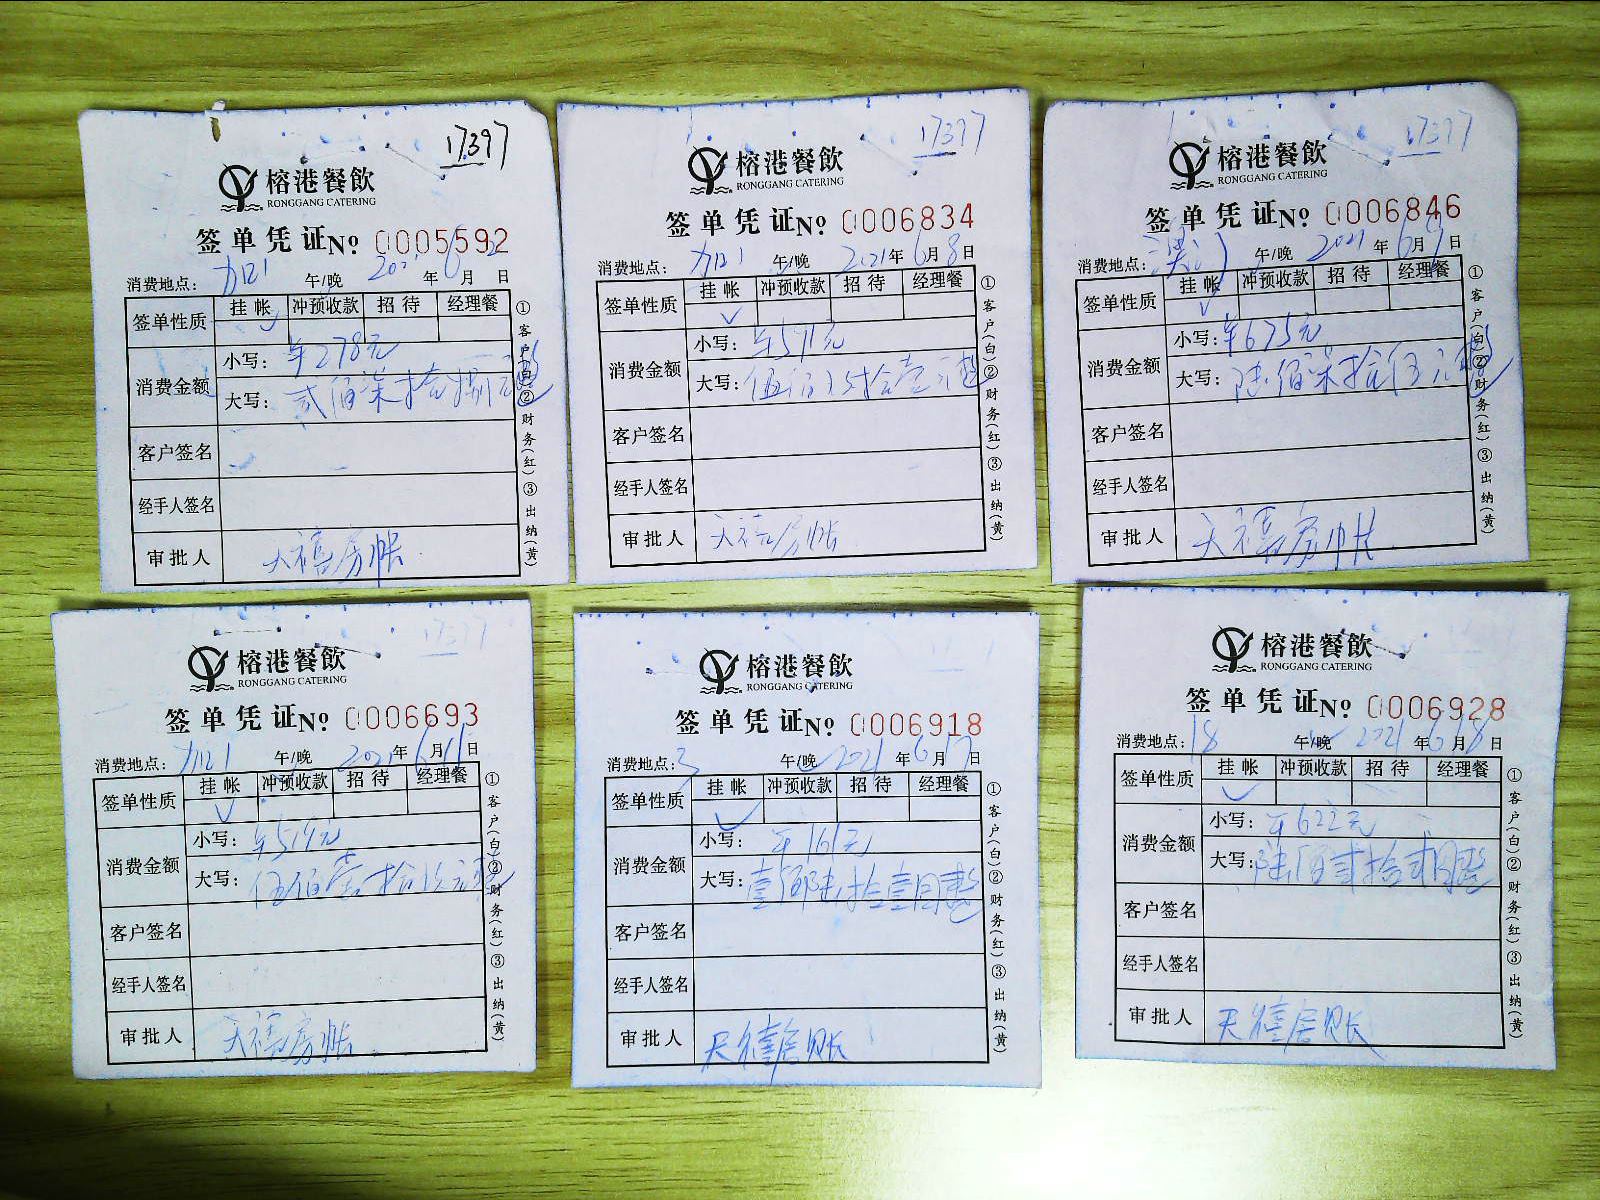 17397
榕港餐飲
RONGGANG CATERING
签单凭证No 0005592
消费地点: 加口1 午/晚 2021年6月2日
签单性质 挂帐 冲预收款 招待 经理餐
✓
消费金额 小写: ¥278元
大写: 贰佰柒拾捌元整
客户签名
经手人签名
审批人 天禧房帐
①客户(白)②财务(红)③出纳(黄)
17397
榕港餐飲
RONGGANG CATERING
签单凭证No 0006834
消费地点: 加口1 午/晚 2021年6月8日
签单性质 挂帐 冲预收款 招待 经理餐
✓
消费金额 小写: ¥571元
大写: 伍佰柒拾壹元整
客户签名
经手人签名
审批人 天禧房帐
①客户(白)②财务(红)③出纳(黄)
17397
榕港餐飲
RONGGANG CATERING
签单凭证No 0006846
消费地点: 澳门 午/晚 2021年6月9日
签单性质 挂帐 冲预收款 招待 经理餐
✓
消费金额 小写: ¥675元
大写: 陆佰柒拾伍元整
客户签名
经手人签名
审批人 天禧房帐
①客户(白)②财务(红)③出纳(黄)
17397
榕港餐飲
RONGGANG CATERING
签单凭证No 0006693
消费地点: 加口1 午/晚 2021年6月11日
签单性质 挂帐 冲预收款 招待 经理餐
✓
消费金额 小写: ¥519元
大写: 伍佰壹拾玖元整
客户签名
经手人签名
审批人 天禧房帐
①客户(白)②财务(红)③出纳(黄)
榕港餐飲
RONGGANG CATERING
签单凭证No 0006918
消费地点: 3 午/晚 2021年6月17日
签单性质 挂帐 冲预收款 招待 经理餐
✓
消费金额 小写: ¥161元
大写: 壹佰陆拾壹圆整
客户签名
经手人签名
审批人 天禧房账
①客户(白)②财务(红)③出纳(黄)
榕港餐飲
RONGGANG CATERING
签单凭证No 0006928
消费地点: 18 午/晚 2021年6月18日
签单性质 挂帐 冲预收款 招待 经理餐
✓
消费金额 小写: ¥622元
大写: 陆佰贰拾贰圆整
客户签名
经手人签名
审批人 天禧房账
①客户(白)②财务(红)③出纳(黄)